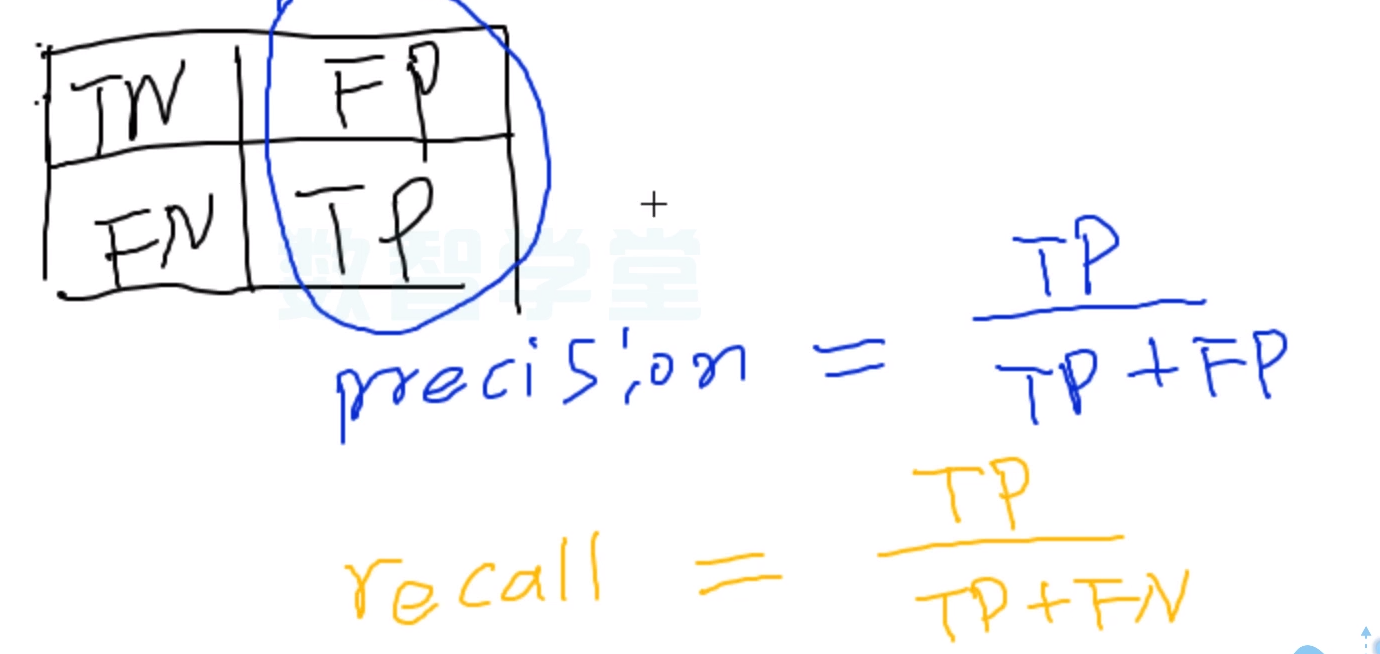 TN FP
FN TP
数智学堂
precision = TP / TP + FP
recall = TP / TP + FN